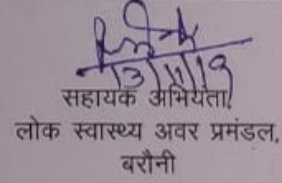 13/11/19
सहायक अभियंता,
लोक स्वास्थ्य अवर प्रमंडल,
बरौनी